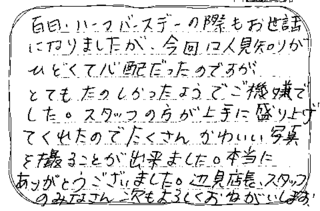 百日・ハーフバースデーの際もお世話
になりましたが、今回は人見知りが
ひどくて心配だったのですが
とてもたのしかったようでご機嫌で
した。スタッフの方が上手に盛り上げ
てくれたのでたくさんかわいい写真
を撮ることが出来ました。本当に
ありがとうございました。辺見店長、スタッフ
のみなさん次もよろしくおねがいします